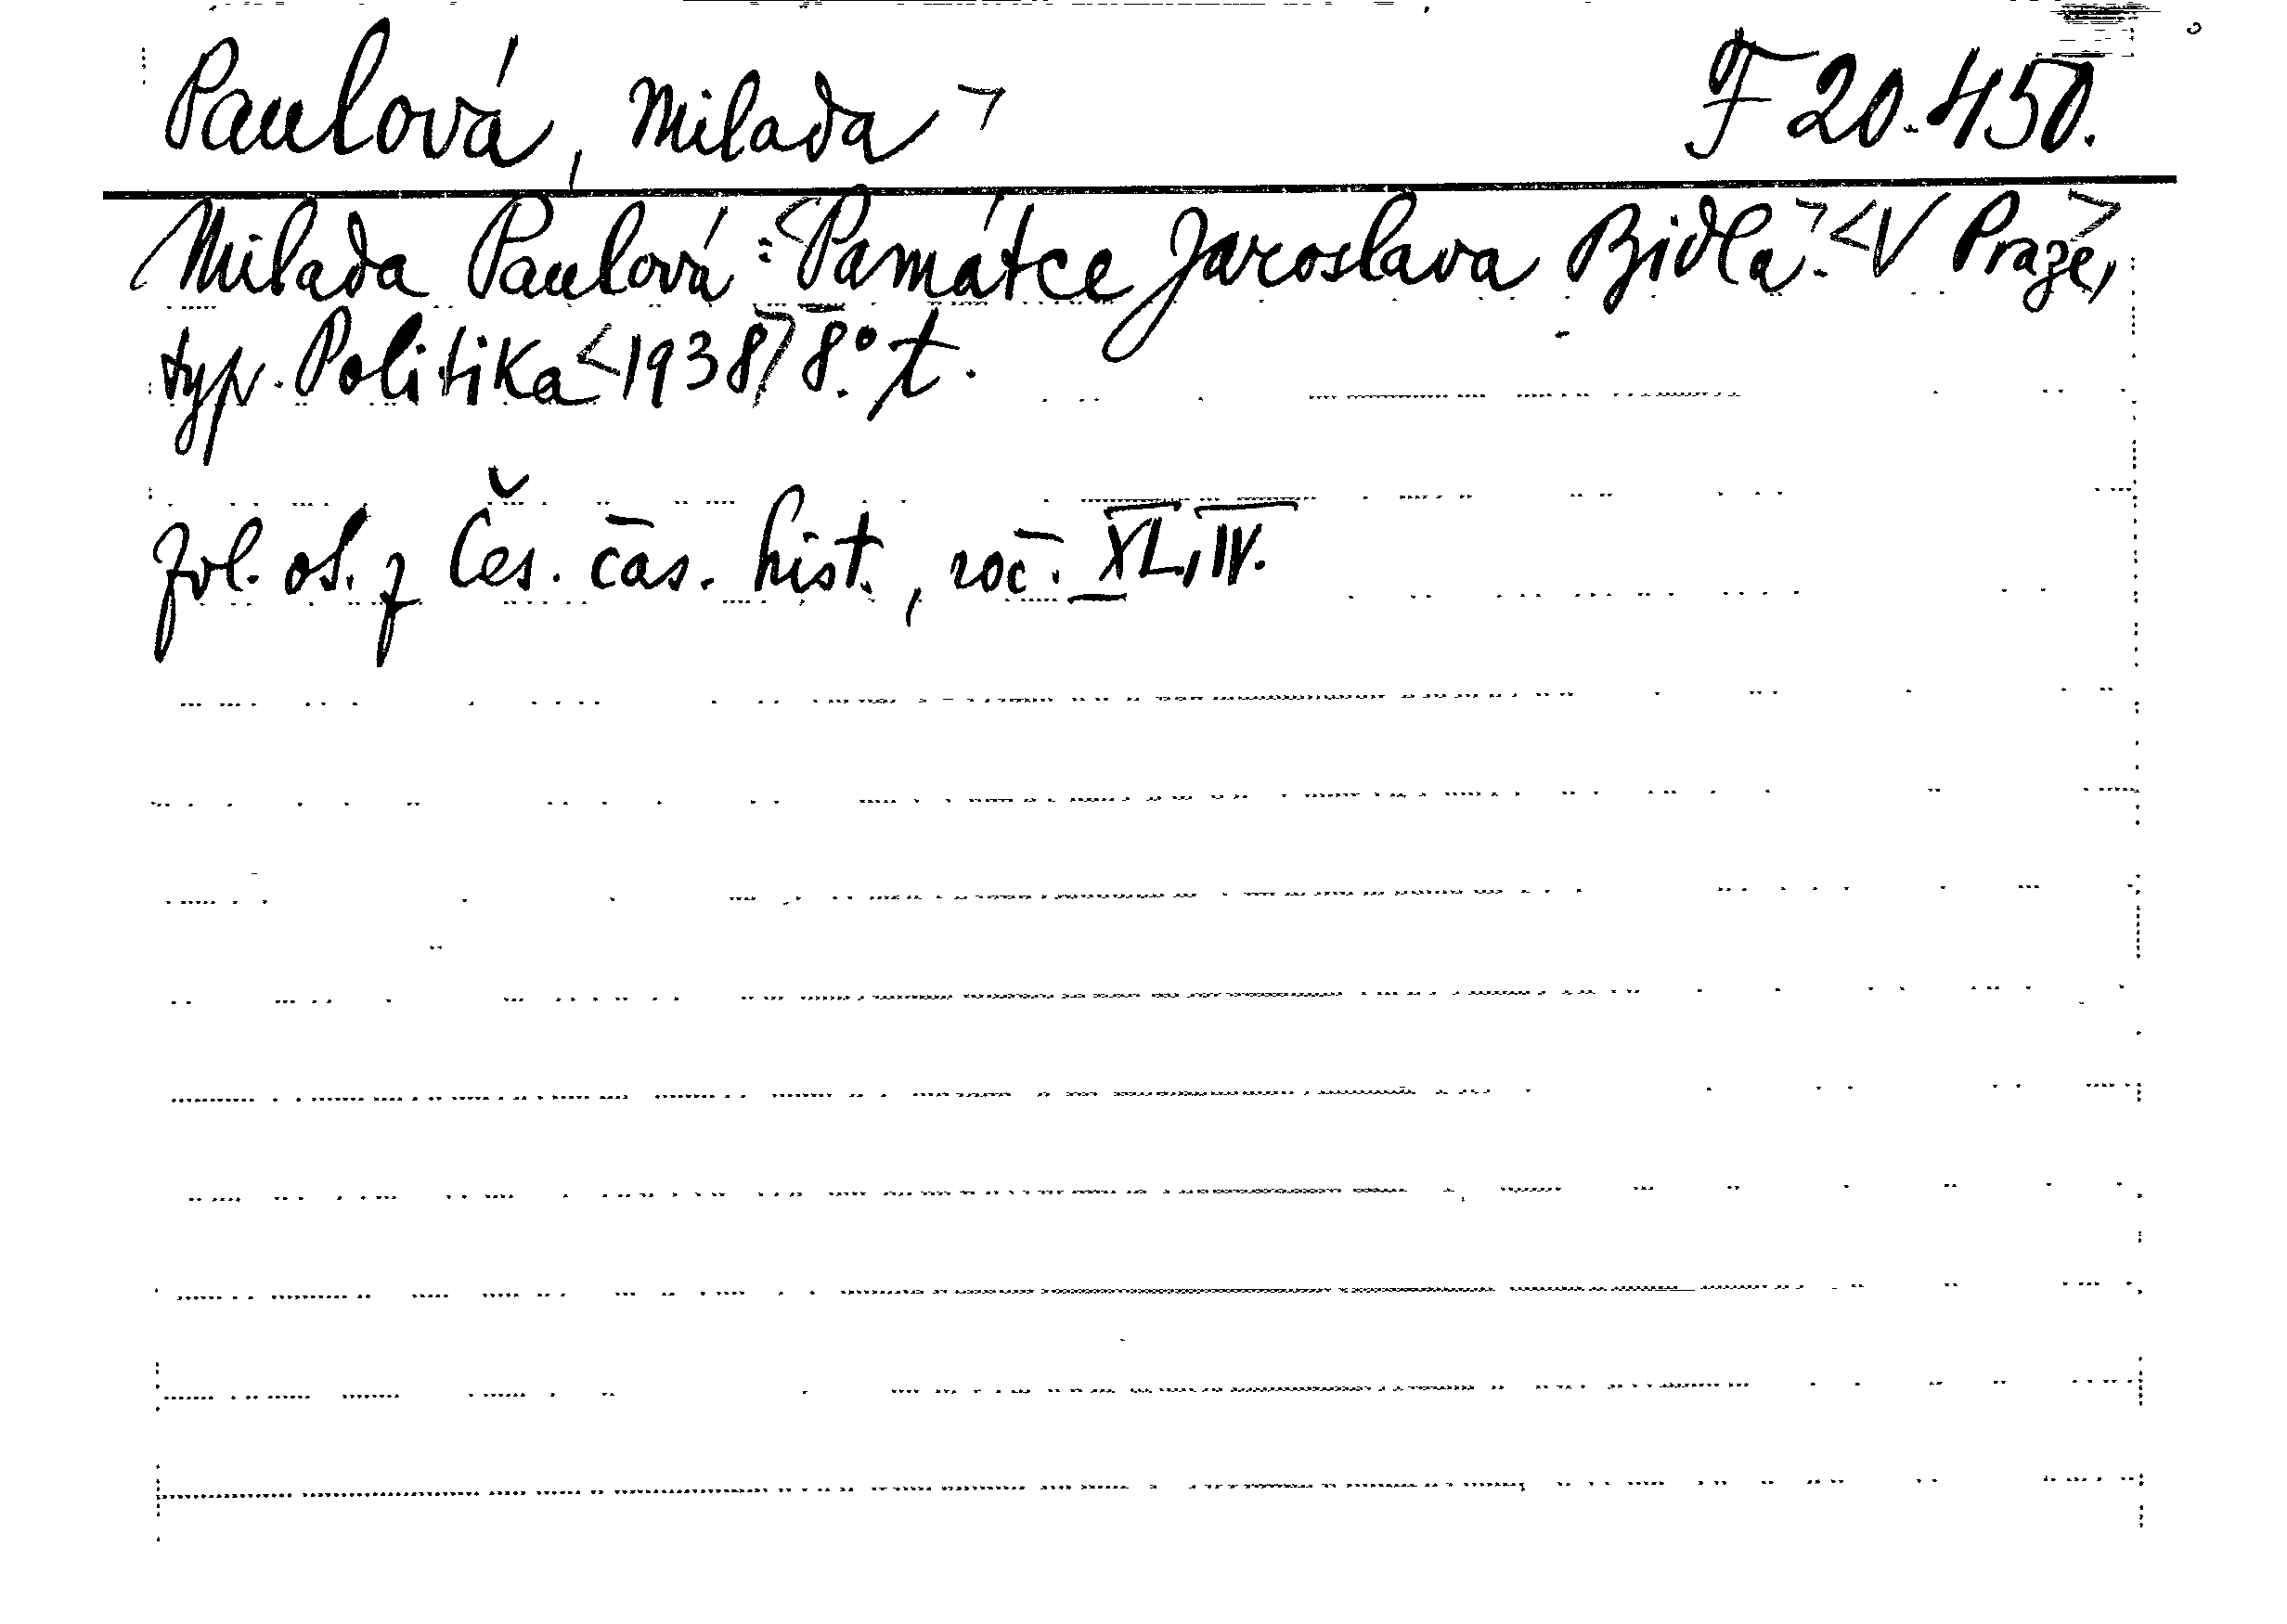 Paulová, Milada > F 20.450.
Milada Paulová: <Památce Jaroslava Bidla.> <V Praze,>
typ. Politika <1938> 8.° t.
Zvl. ot. z Čes. čas. hist., roč. XL, IV.